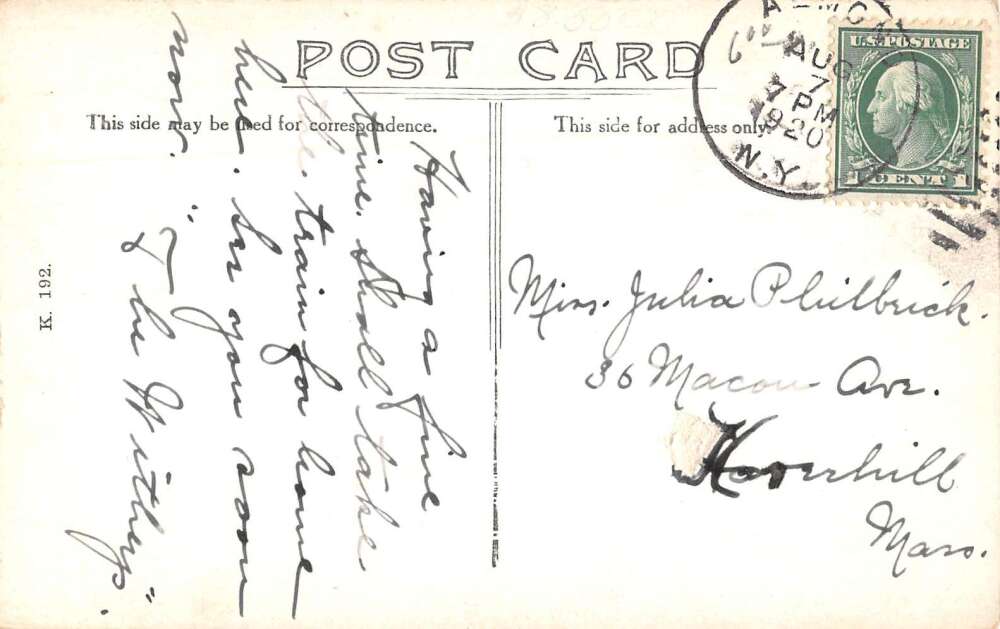 POST CARD
This side may be used for correspondence.
This side for address only.
AUG
7
7 PM
1920
N.Y.
U.S. POSTAGE
1 CENT 1
K. 192.
Having a fine
time. Shall take
the train for home
here. See you soon
now.
"The Witherps".
Miss. Julia Philbrick.
36 Macon Ave.
Haverhill
Mass.